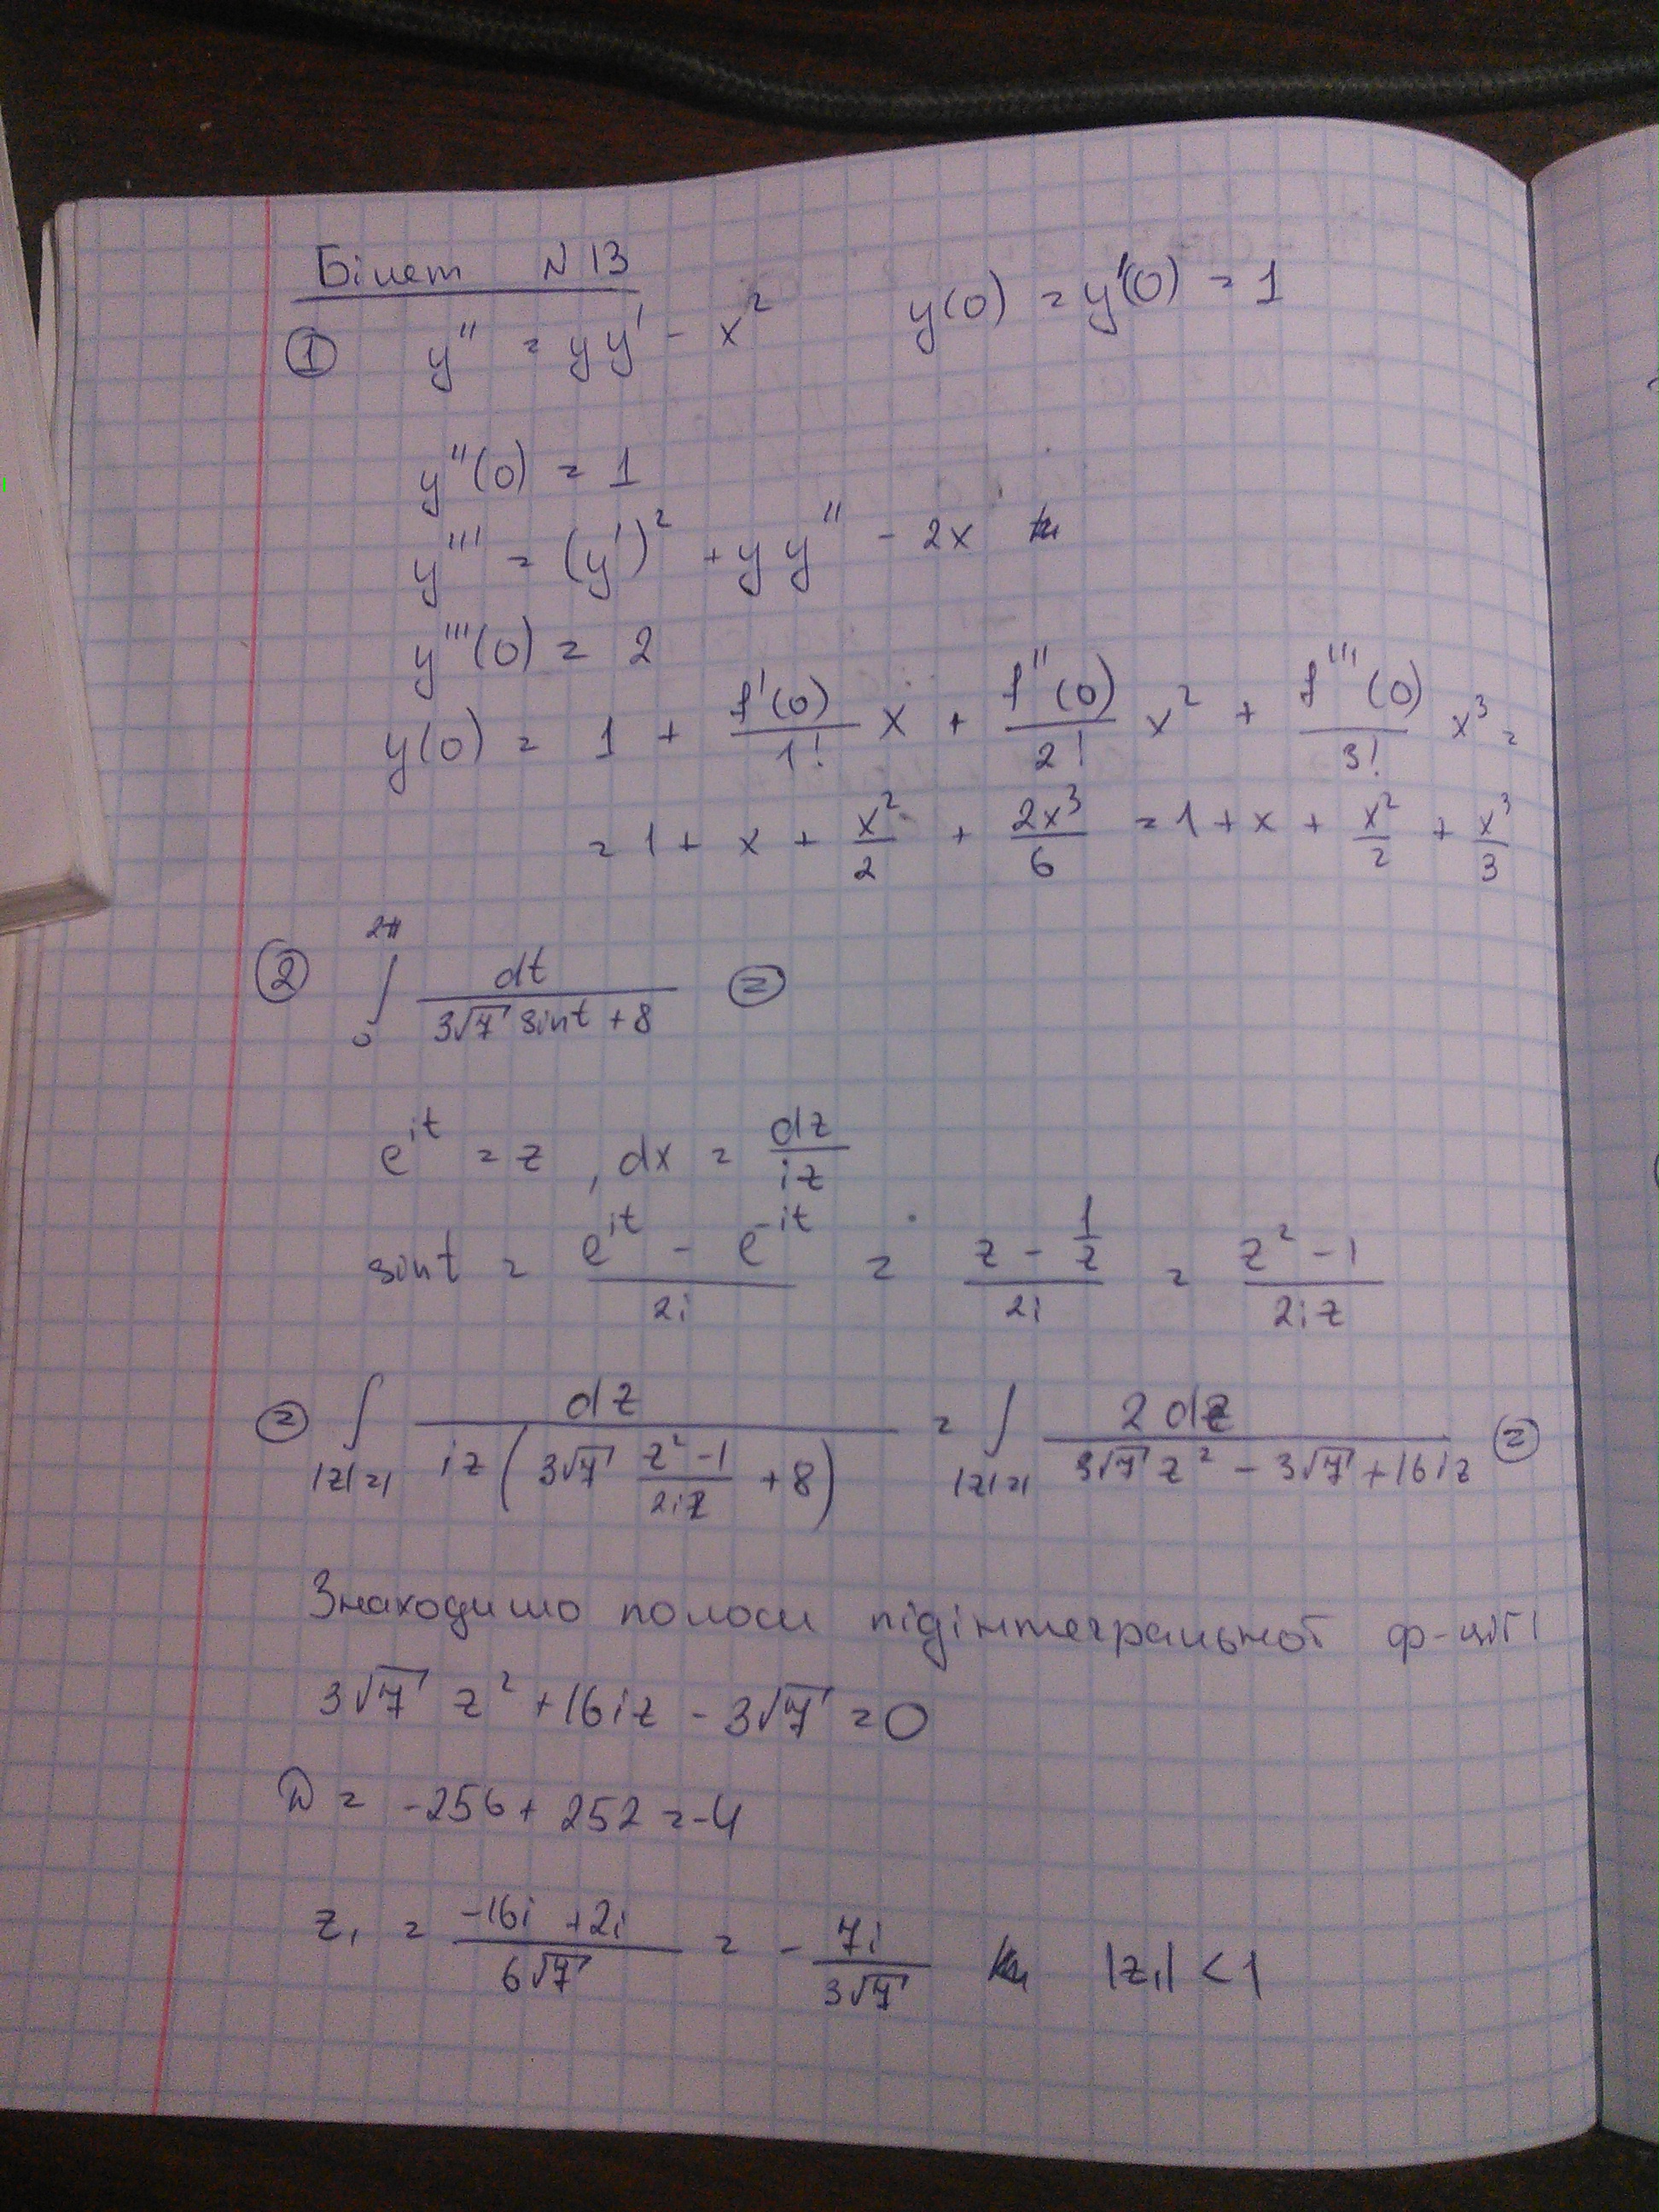 Білет N 13
① y'' = yy' - x² y(0) = y'(0) = 1
y''(0) = 1
y''' = (y')² + y y'' - 2x
y'''(0) = 2
y(0) = 1 + f'(0)/1! x + f''(0)/2! x² + f'''(0)/3! x³ =
= 1 + x + x²/2 + 2x³/6 = 1 + x + x²/2 + x³/3
② ∫₀^2π dt/(3√7 sint + 8) ⊜
e^it = z , dx = dz/iz
sint = (e^it - e^-it)/2i = (z - 1/z)/2i = (z² - 1)/2iz
⊜ ∫|z|=1 dz/(iz(3√7 (z² - 1)/2iz + 8)) = ∫|z|=1 2dz/(3√7 z² - 3√7 + 16iz) ⊜
Знаходимо полюси підінтегральної ф-ції
3√7 z² + 16iz - 3√7 = 0
D = -256 + 252 = -4
z₁ = (-16i + 2i)/6√7 = - 7i/3√7 |z₁| < 1